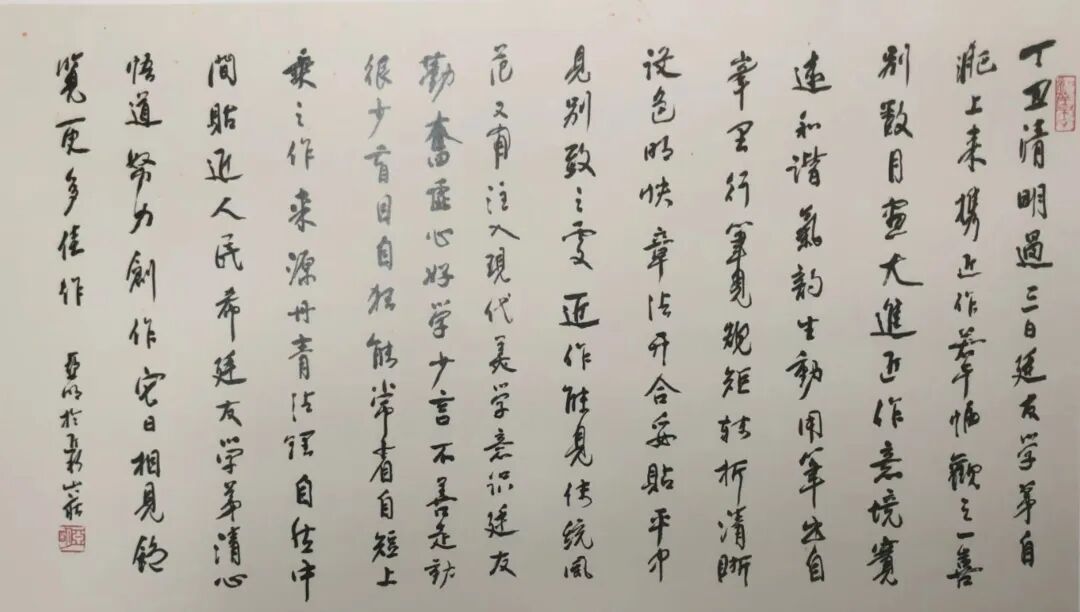 丁丑清明過三日廷友学弟自
淝上来携近作若干幅觀之一喜
别数月畫大進近作意境寬
遠和諧氣韵生動用筆出自
峯里行筆見規矩轉折清晰
设色明快章法开合妥貼平中
見别致之雯近作能見传統風
范又有注入現代美学意识廷友
勤奮虚心好学少言不善走动
很少盲目自狂能常看自短上
乘之作来源丹青法理自然中
間貼近人民希廷友学弟清心
悟道努力創作它日相見能
覧更多佳作
亞明於近水山莊
亞明